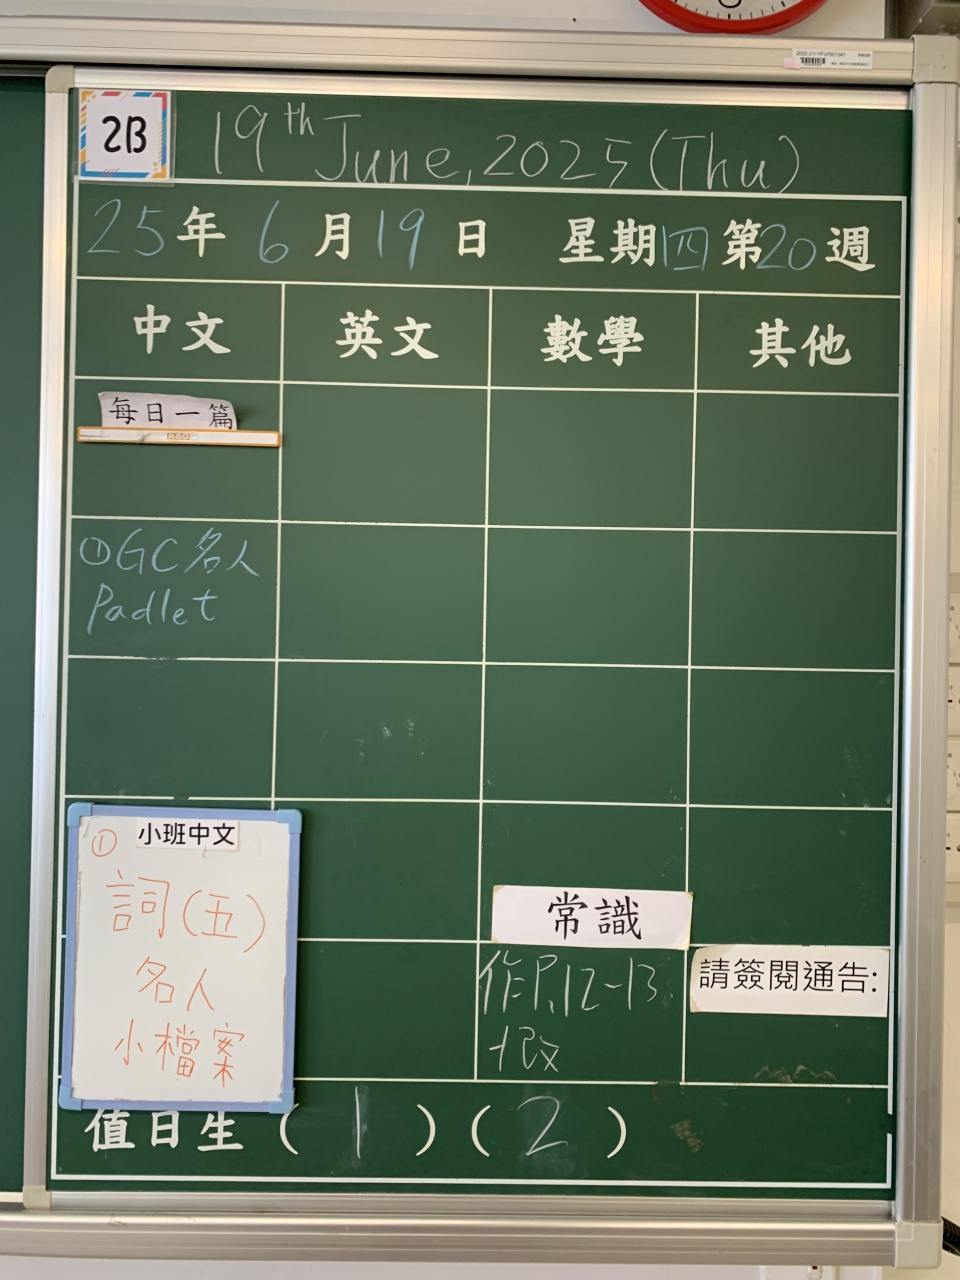 2B
19th June, 2025 (Thu)
25年 6月19日 星期四 第20週
中文 英文 數學 其他
每日一篇
①GC名人
Padlet
小班中文
①
詞(五)
名人
小檔案
常識
作P.12-13
+改
請簽閱通告:
值日生(1)(2)